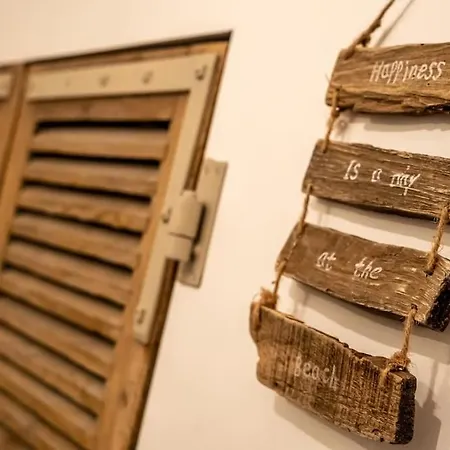 Happiness
Is a my
at the
Beach